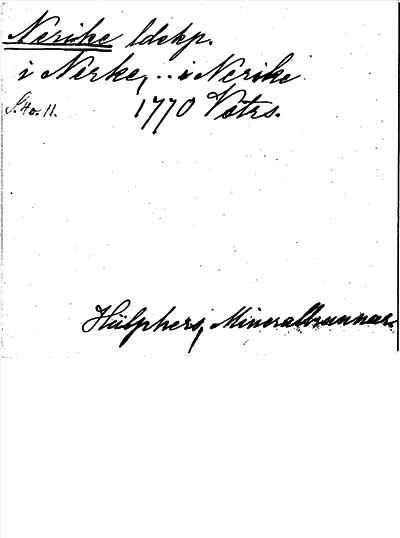 Nerike ldskp.
i Nerke, .. i Nerike
S. 40. 11. 1770 Vötrs.
Hülphers, Mineralbrunnar.